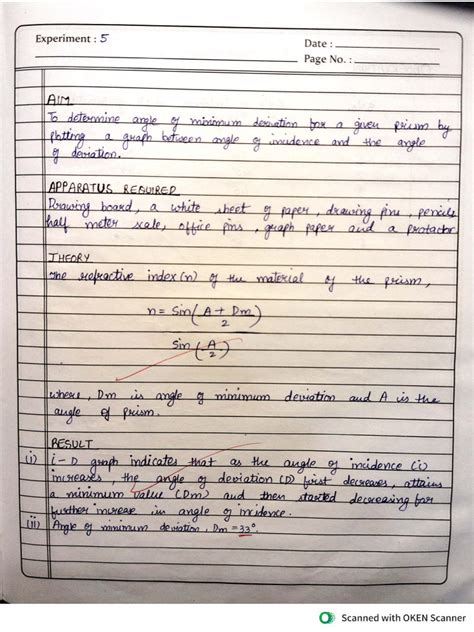 Experiment : 5
Date :
Page No. :
AIM
To determine angle of minimum deviation for a given prism by
plotting a graph between angle of incidence and the angle
of deviation.
APPARATUS REQUIRED
Drawing board, a white sheet of paper, drawing pins, pencils
half meter scale, office pins, graph paper and a protactor
THEORY
The refractive index (n) of the material of the prism,
n = Sin(A + Dm / 2)
Sin (A / 2)
where, Dm is angle of minimum deviation and A is the
angle of prism.
RESULT
(i) i - D graph indicates that as the angle of incidence (i)
increases, the angle of deviation (D) first decreases, attains
a minimum value (Dm) and then started decreasing for
further increase in angle of incidence.
(ii) Angle of minimum deviation, Dm = 33°.
Scanned with OKEN Scanner